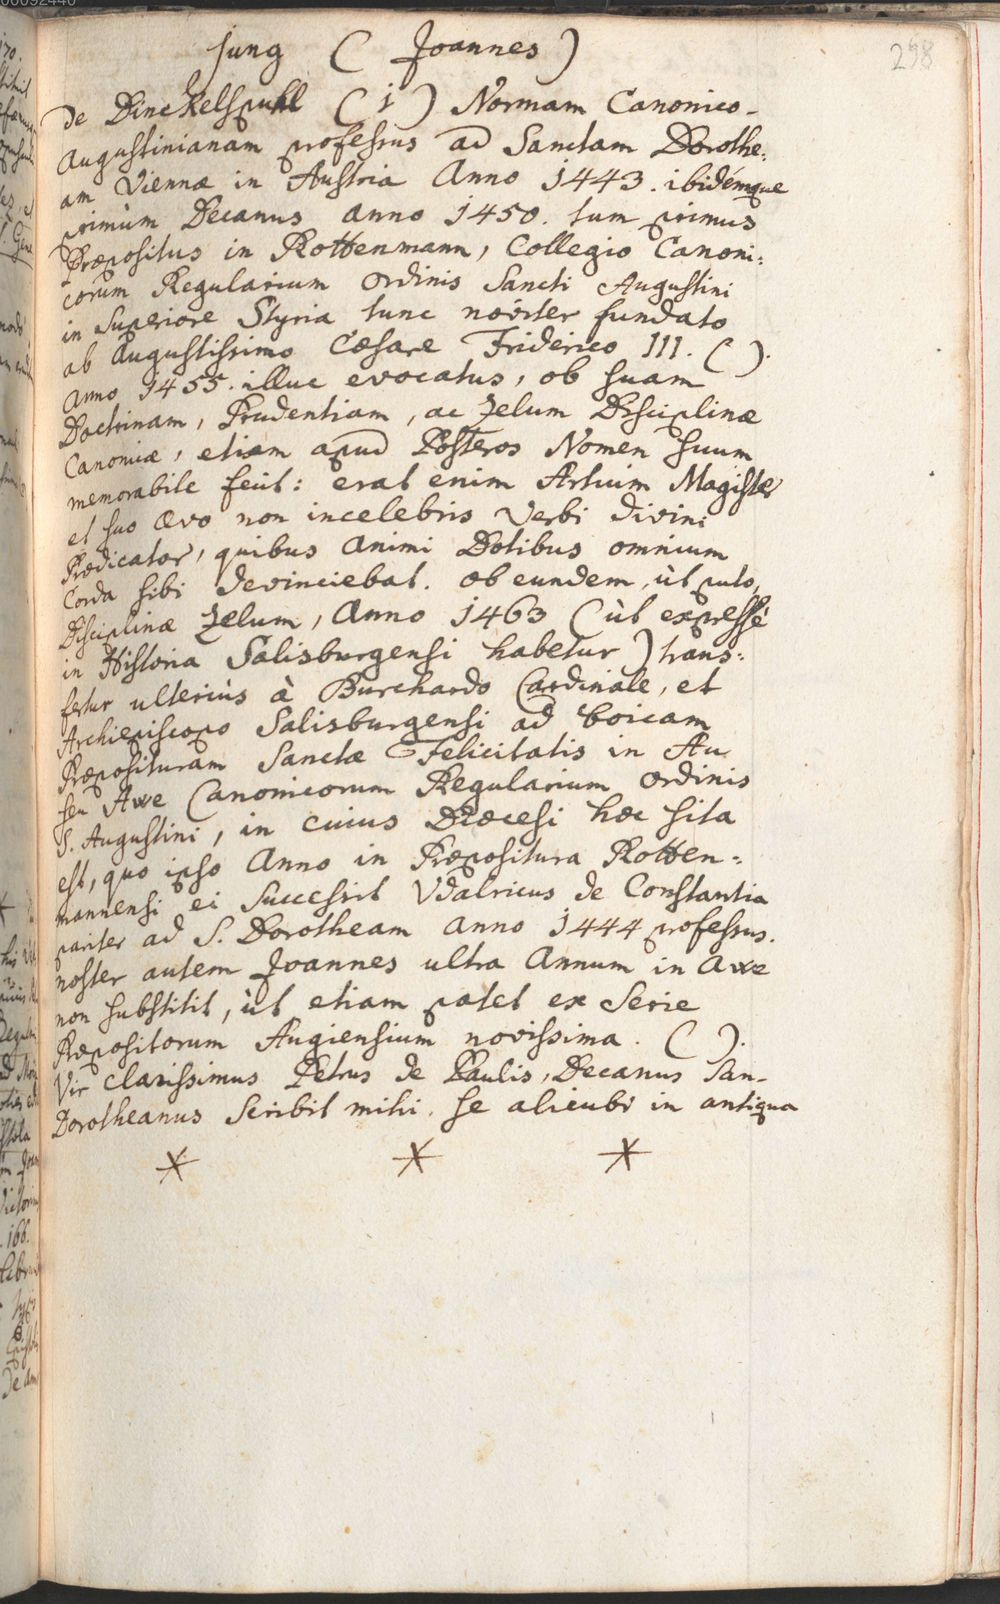 258
Jung ( Joannes )
de Dinckelspuhl ( i ) Normam Canonico-
Augustinianam professus ad Sanctam Dorothe:
am Viennæ in Austria Anno 1443. ibidémque
primùm Decanus anno 1450. tum primus
Præpositus in Rottenmann, Collegio Canoni:
corum Regularium ordinis Sancti Augustini
in Superiore Styria tunc novíter fundato
ab Augustissimo Cæsare Friderico III. ( ).
Anno 1455. illuc evocatus, ob suam
Doctrinam, Prudentiam, ac Zelum Disciplinæ
Canonicæ, etiam apud Posteros Nomen suum
memorabile fecit: erat enim Artium Magister
et suo ævo non incelebris Verbi Divini
Prædicator, quibus Animi Dotibus omnium
Corda sibi devinciebat. ob eundem, ùt puto,
Disciplinæ Zelum, Anno 1463 ( ùt expressè
in Historia Salisburgensi habetur ) trans:
fertur ulteriùs à Burchardo Cardinale, et
Archiepiscopo Salisburgensi ad boicam
Præposituram Sanctæ Felicitatis in Au
seu Awe Canonicorum Regularium ordinis
S. Augustini, in cuius Diœcesi hæc sita
est, quo ipso Anno in Præpositura Rotten-
mannensi ei Successit Vdalricus de Constantia
pariter ad S. Dorotheam Anno 1444 professus.
noster autem Joannes ultra Annum in Awe
non substitit, ùt etiam patet ex Serie
Præpositorum Augiensium novissima. ( ).
Vir clarissimus Petrus de Paulis, Decanus San-
Dorotheanus Scribit mihi. se alicubi in antiqua
* * *